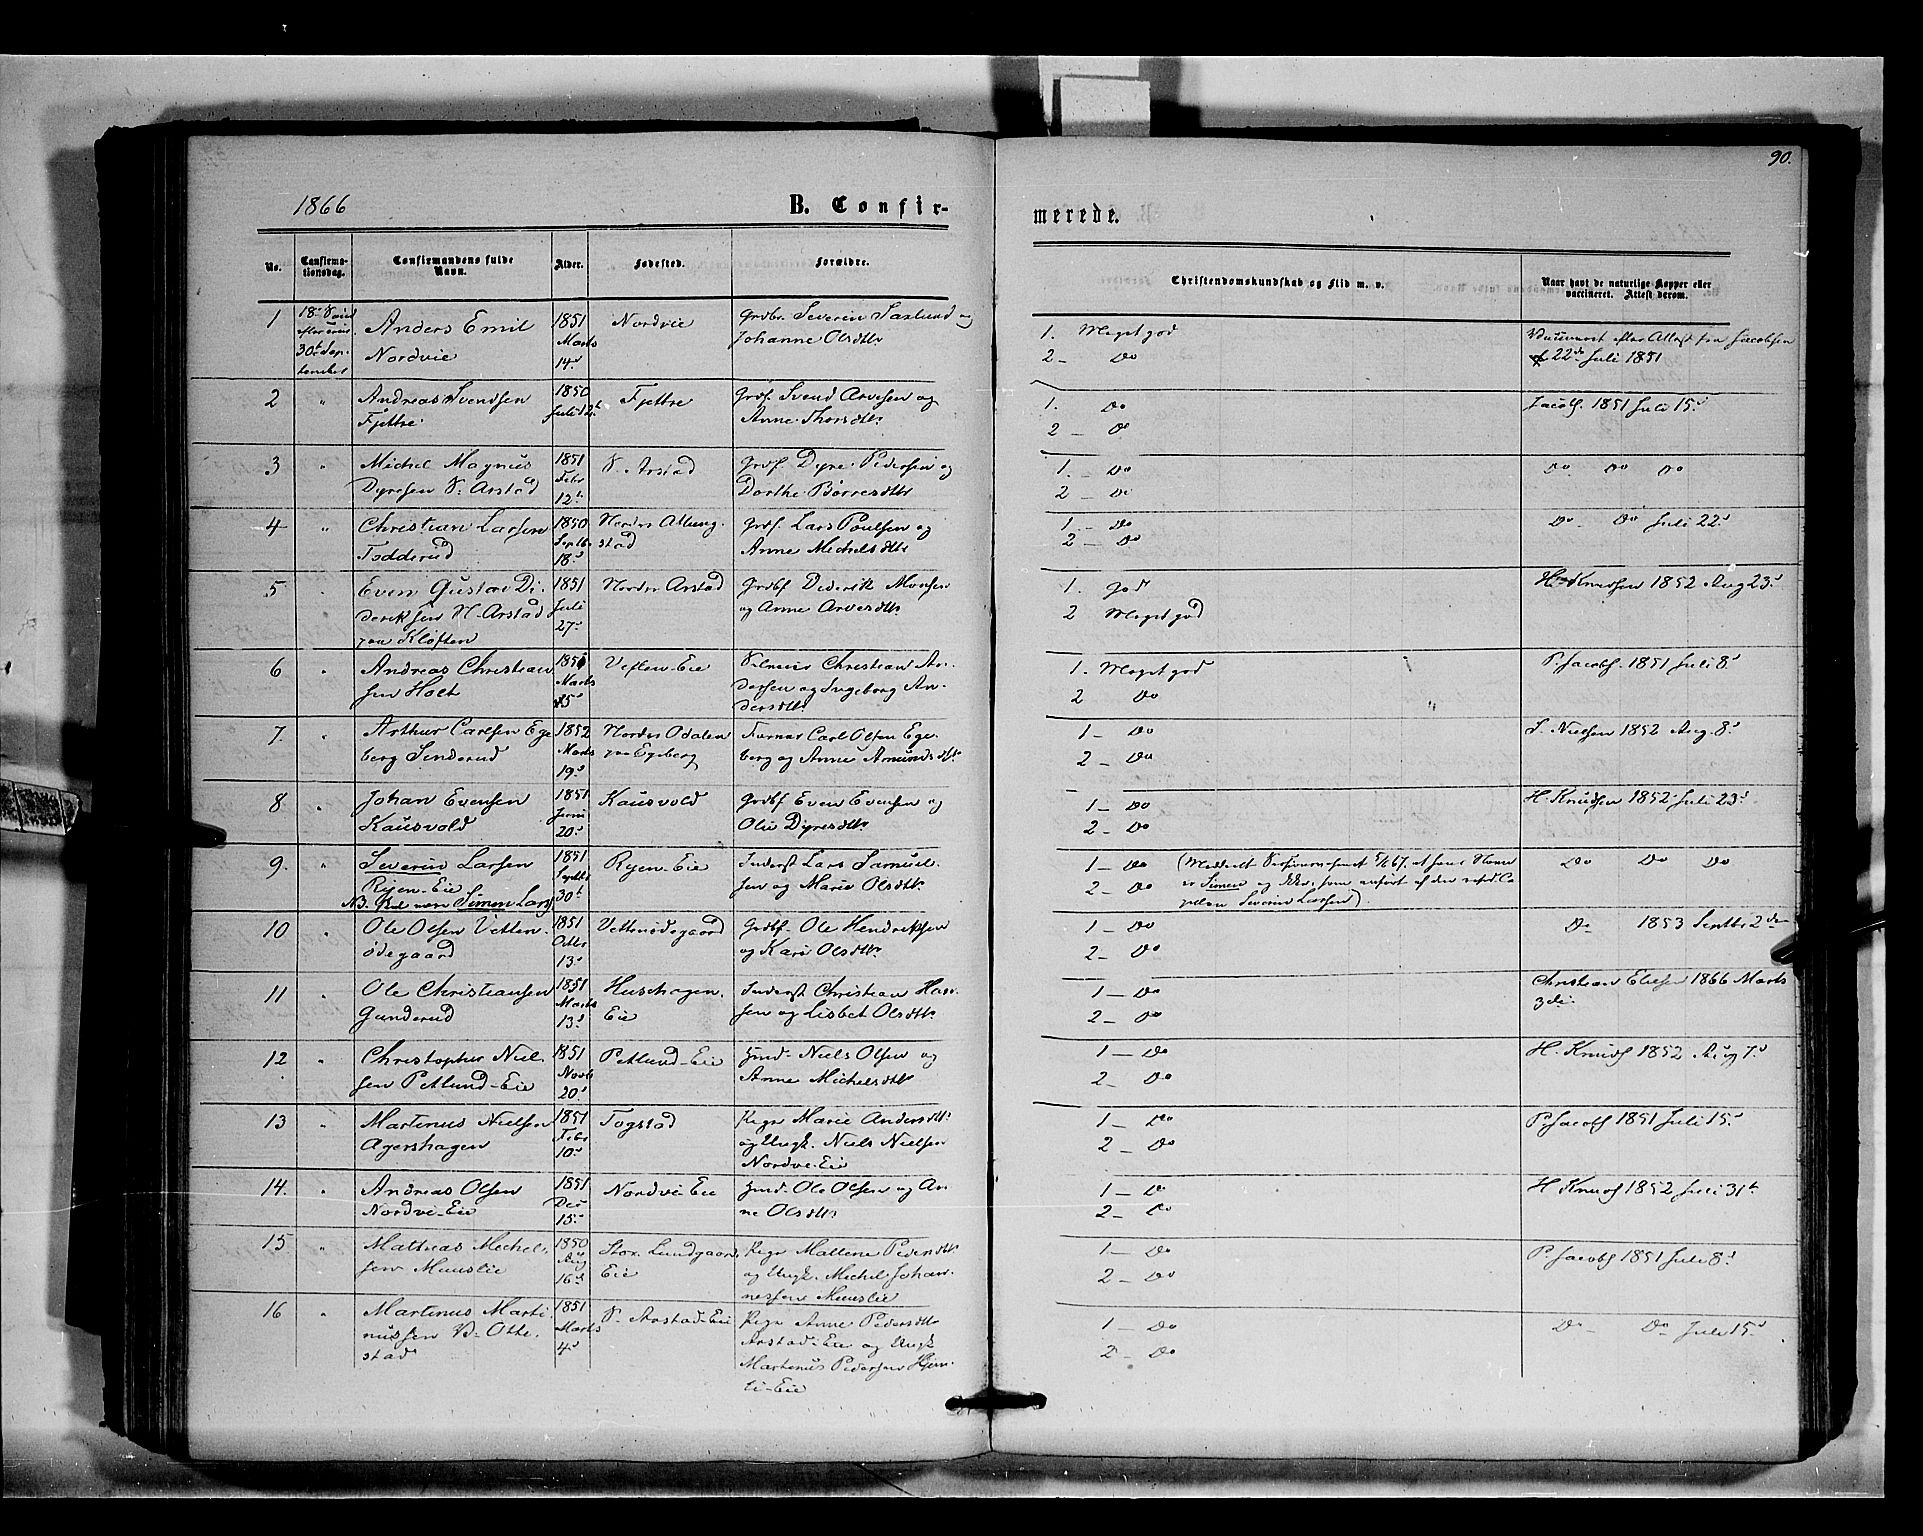 90.
1866
B. Confir-
merede.
No.
Confirma-
tionsdag.
Confirmandens fulde
Navn.
Alder.
Fødested.
Forældre.
Christendomskundskab og Flid m. v.
Naar havt de naturlige Kopper eller
vaccineret. Attest derom.
1
30te Sep-
tember
Anders Emil
Nordvie
1851
Marts
14d
Nordvie
Grdbr. Severin Saxlund og
Johanne Olsdttr
1. Meget god
2 - Do
Vaccineret efter Attest fra Jacobsen
22de Juli 1851
2
"
Andreas Svendsen
Fjettre
1850
Juli 12t
Fjettre
Grdf. Svend Arvesen og
Anne Thorsdttr
1. Do
2 - Do
Jacobs. 1851 Juli 15d
3
"
Michel Magnus
Dyresen S. Arstad
1851
Febr
12t
S. Arstad
Grdf. Dyre Pedersen og
Dorthe Børresdttr
1. - Do
2 - Do
Do Do Do
4
"
Christian Larsen
Todderud
1850
Septb.
18d
Nordre Allung-
stad
Grdf. Lars Poulsen og
Anne Michelsdttr
1 - Do
2 - Do
Do - Do Juli 22d
5
"
Even Gustav Di-
deriksen N. Arstad
paa Kløften
1851
Juli
27d
Nordre Arstad
Grdbf Diderik Monsen
og Anne Arvesdttr
1. God
2 Meget god
H. Knudsen 1852 Aug 23d
6
"
Andreas Christian-
sen Holt
Marts
Veflen-Eie
Christian An-
dersen og Ingeborg An-
dersdttr
1. Meget god
2 Do
P. Jacobs. 1851 Juli 8d
7.
"
Arthur Carlsen Ege-
berg Sinderud
1852
Marts
19d
Nordre Odalen
paa Egeberg
Carl Olsen Ege-
berg og Anne Amundsdttr
1 - Do
2 - Do
S. Nielsen 1852 Aug. 8d
8
"
Johan Evensen
Kausvold
1851
Juni
20d
Kausvold
Grdbf Even Evensen og
Olie Dyresdttr
1 - Do
2 - Do
H. Knudsen 1852 Juli 23d
9.
"
Severin Larsen
Ryen-Eie
NB. Skal være Simen Lars.
1851
Septbr
30t
Ryen-Eie
Inderst Lars Samuel-
sen og Marie Olsdttr
1 - Do
2 - Do
er Simen og ikke, som anført af den resid. Ca-
pellan Severin Larsen)
Do Do Do
10
"
Ole Olsen Vetten-
ødegaard
1851
Octbr
13d
Vettenødegaard
Grdbf. Ole Hendriksen
og Kari Olsdttr
1 - Do
2 - Do
Do 1853 Septbr 2den
11
"
Ole Christiansen
Gunderud
1851
Marts
13d
Hushagen-
Eie
Inderst Christian Han-
sen og Lisbet Olsdttr
1 - Do
2 - Do
Christian Eliesen 1866 Marts
3die
12
"
Christopher Niel-
sen Petlund-Eie
1851
Novb
20d
Petlund-Eie
Hmd. Niels Olsen og
Anne Michelsdttr
1 - Do
2 - Do
H. Knuds 1852 Aug 7d
13
"
Martinus Nielsen
Agershagen
1851
Febr
10d
Togstad
Pige Marie Andersdttr
og Ungk. Niels Nielsen
Nordvi-Eie
1 - Do
2 - Do
P. Jacobs 1851 Juli 15d
14.
"
Andreas Olsen
Nordvi-Eie
1851
Dec
15d
Nordvi-Eie
Hmd. Ole Olsen og An-
ne Olsdttr
1 - Do
2 - Do
H Knuds 1852 Juli 31t
15
"
Mathias Michel-
sen Muuslie
1850
Aug
16d
Stor. Lundgaard
Eie
Pige Mallene Pedersdttr
og Ungk. Michel Johan-
nessen Muuslie
1 - Do
2 - Do
P. Jacobs 1851 Juli 8d
16
"
Martinus Marti-
nussen V. Otte-
stad
1851
Marts
4d
S. Arstad-Eie
Pige Anne Pedersdttr
Arstad-Eie og Ungk
Martinus Pedersen Hjem-
li-Eie
1 - Do
2 - Do
Do Do Juli 15d